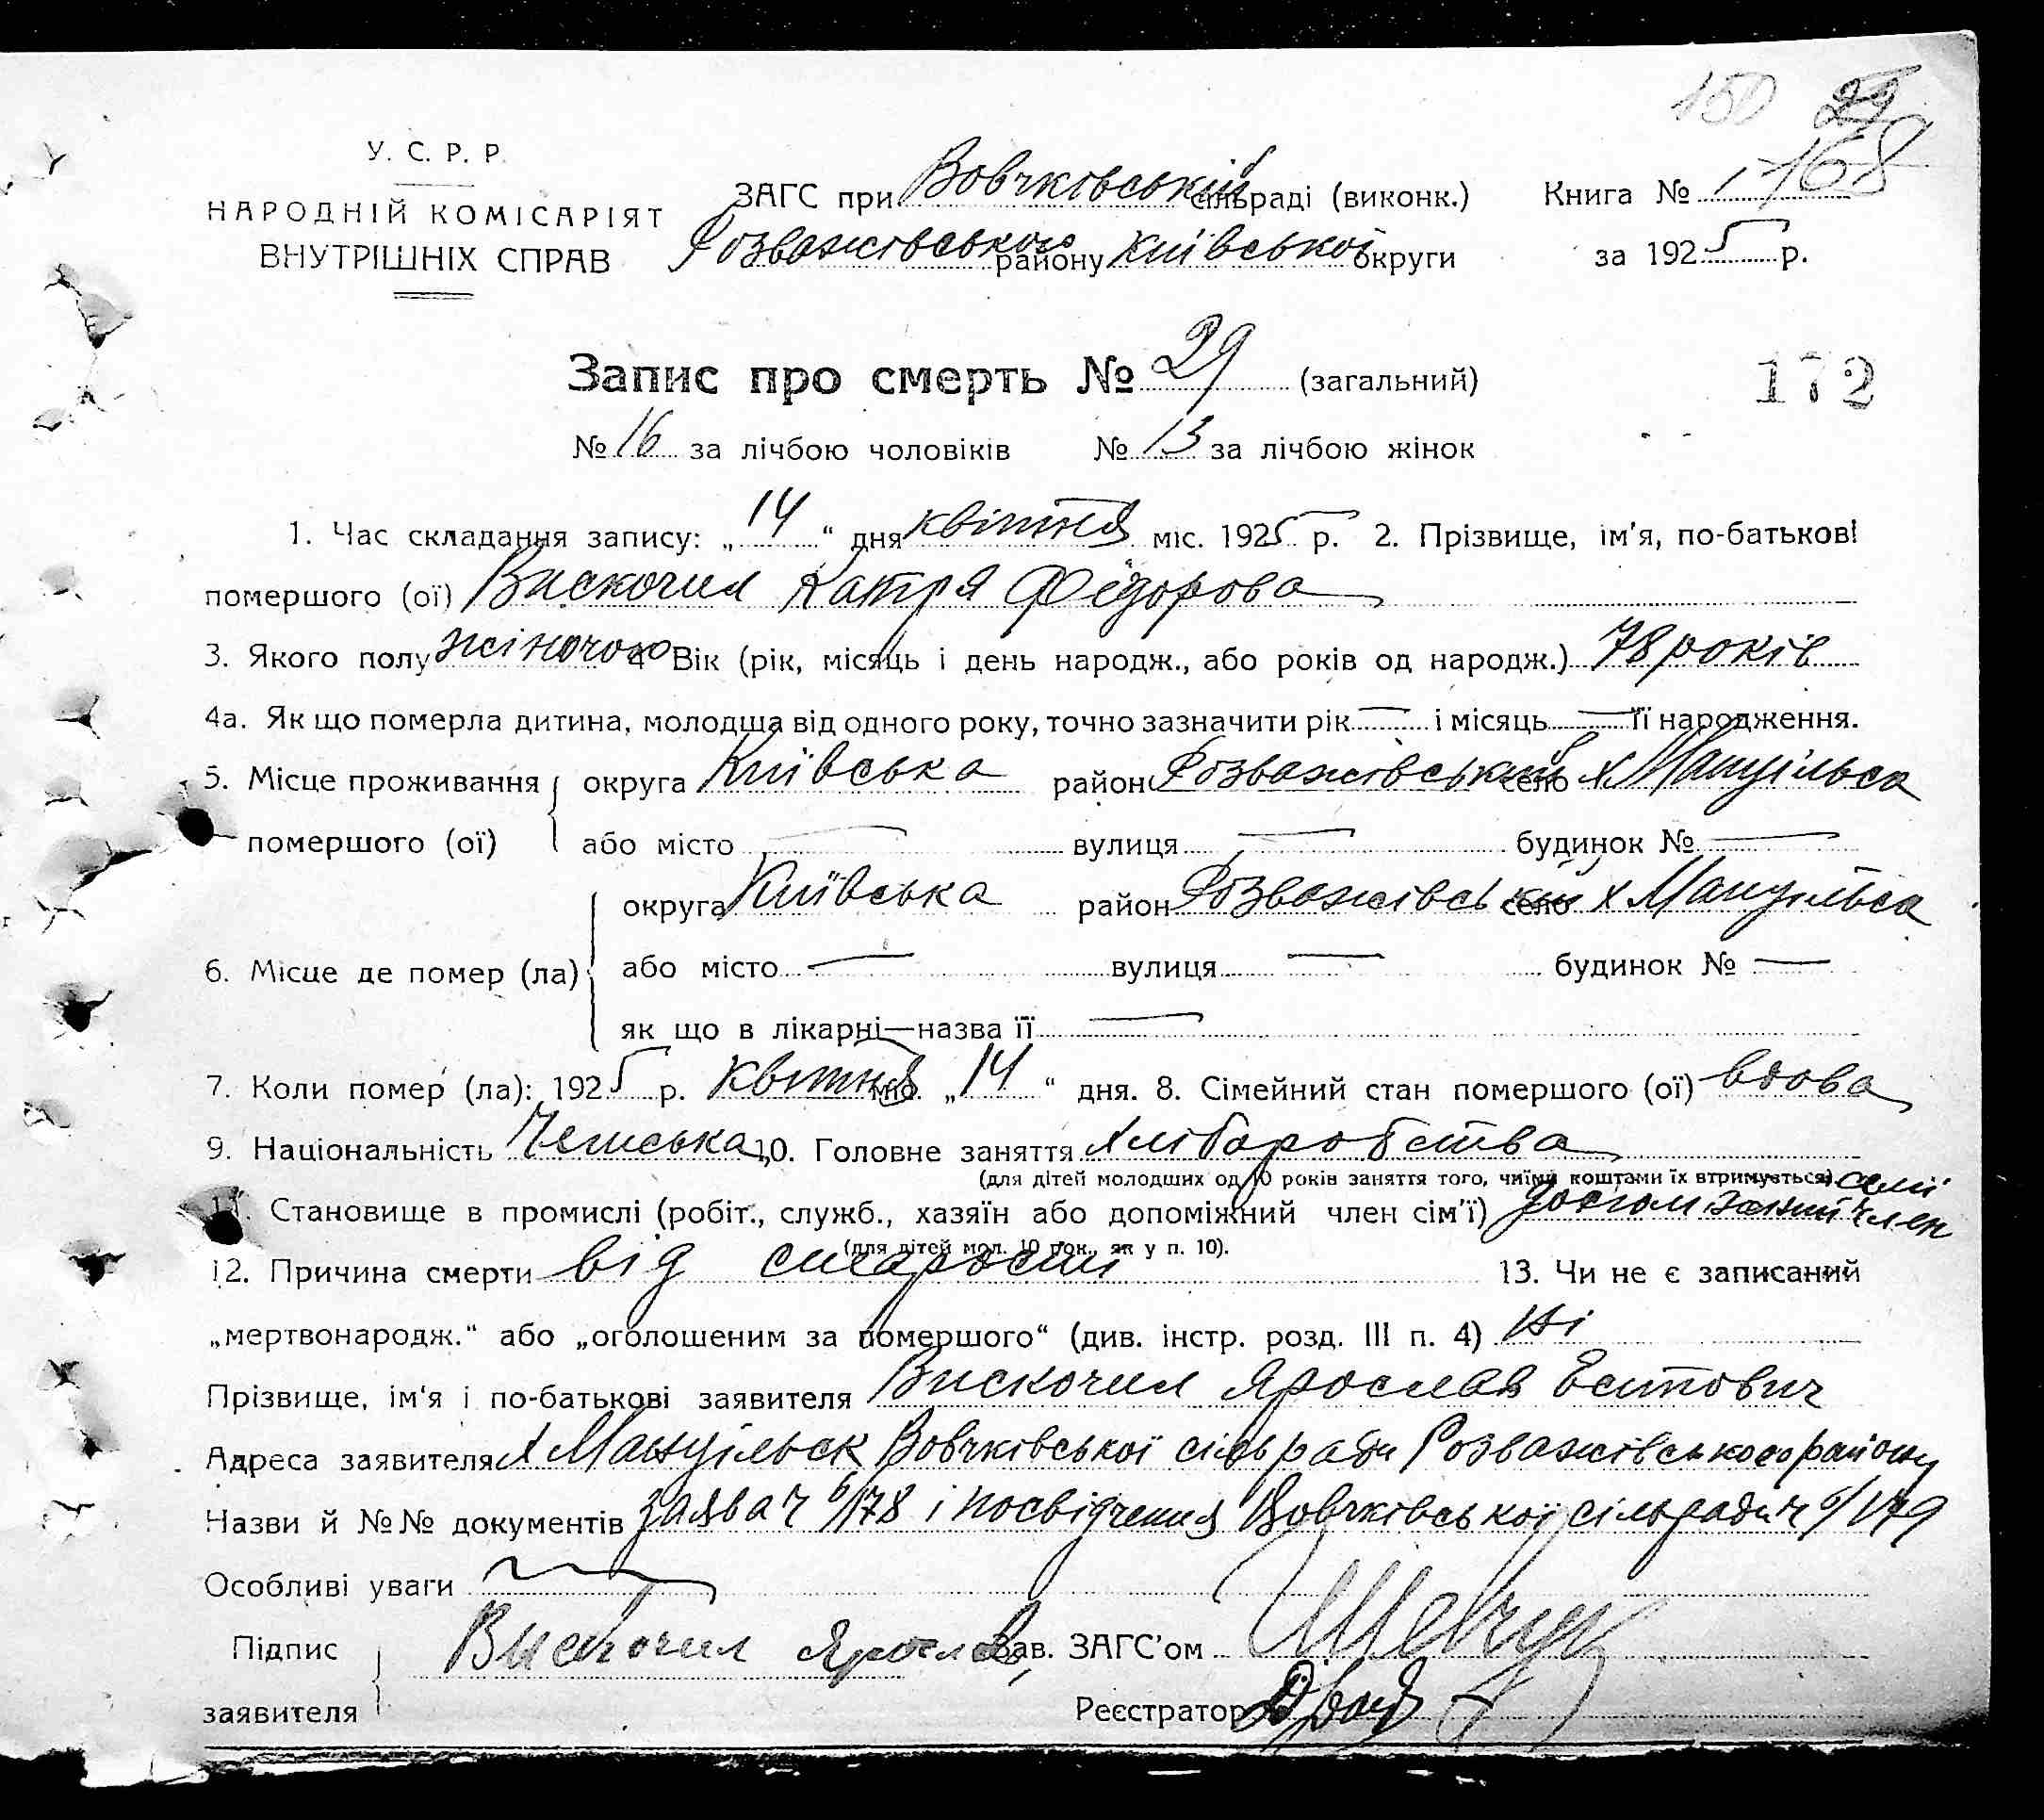 150 29
168
У. С. Р. Р.
НАРОДНІЙ КОМІСАРІЯТ
ВНУТРІШНІХ СПРАВ
ЗАГС при Вовчківській сільраді (виконк.) Книга № 1
Розважівського району Київської округи за 1925 р.
Запис про смерть № 29 (загальний)
172
№ 16 за лічбою чоловіків № 13 за лічбою жінок
1. Час складання запису: „14“ дня квітня міс. 1925 р. 2. Прізвище, ім'я, по-батькові
помершого (ої) Вискочил Катря Федорова
3. Якого полу жіночого 4 Вік (рік, місяць і день народж., або років од народж.) 78 років
4а. Як що померла дитина, молодша від одного року, точно зазначити рік — і місяць — її народження.
5. Місце проживання округа Київська район Розважівський село х Мануїльск
помершого (ої) або місто — вулиця — будинок № —
округа Київська район Розважівський село х Мануїльск
6. Місце де помер (ла) або місто — вулиця — будинок № —
як що в лікарні—назва її —
7. Коли помер (ла): 1925 р. квітня міс. „14“ дня. 8. Сімейний стан помершого (ої) вдова
9. Національність Чешська 10. Головне заняття хліборобства
(для дітей молодших од 10 років заняття того, чиїми коштами їх втримується)
11. Становище в промислі (робіт., служб., хазяїн або допоміжний член сім'ї) член
(для дітей мол. 10 рок., як у п. 10).
12. Причина смерти від старости 13. Чи не є записаний
„мертвонародж.“ або „оголошеним за помершого“ (див. інстр. розд. III п. 4) Ні
Прізвище, ім'я і по-батькові заявителя Вискочил Ярослав
Адреса заявителя х Мануїльск Вовчківської сільради Розважівського району
Назви й №№ документів заява ч 6/178 і посвідчення Вовчківської сільради ч 6/179
Особливі уваги
Підпис Вискочил Ярослав Зав. ЗАГС'ом Шевчук
заявителя Реєстратор